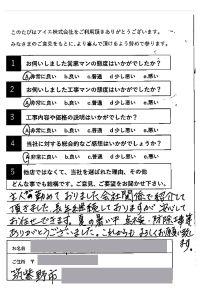 このたびはアイエス株式会社をご利用頂きありがとうございます。
みなさまのご意見をもとに、より喜んで頂けるよう努めて参ります。
1 お伺いしました営業マンの態度はいかがでしたか？
a.非常に良い b.良い c.普通 d.少し悪い e.悪い
2 お伺いしました工事マンの態度はいかがでしたか？
a.非常に良い b.良い c.普通 d.少し悪い e.悪い
3 工事内容や価格の説明はいかがでしたか？
a.非常に良い b.良い c.普通 d.少し悪い e.悪い
4 当社に対する総合的なご感想はいかがでしょうか？
a.非常に良い b.良い c.普通 d.少し悪い e.悪い
5 他店ではなくて、当社を選ばれた理由、その他
どんな事でも結構です。ご意見、ご要望をお聞かせ下さい。
主人の勤めておりました会社関係で紹介して
頂きました。長年継続しておりますが安心して
お任せできます。夏の暑い中 点検・
ありがとうございました。これからもよろしくお願い致し
ます。
お名前
ご住所 〒
筑紫野市